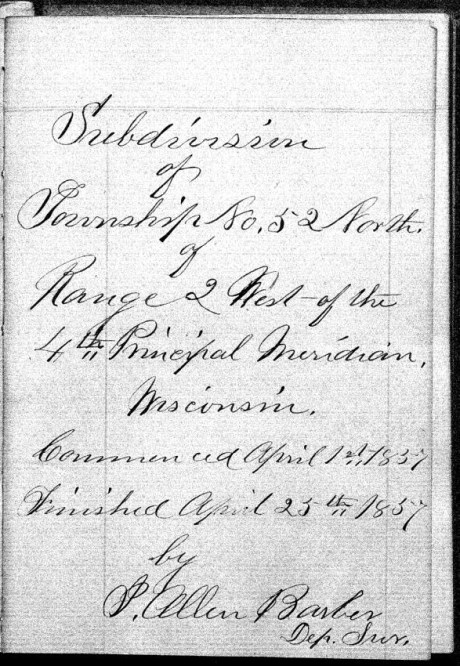 Subdivision
of
Township No. 52 North.
of
Range 2 West of the
4th Principal Meridian,
Wisconsin.
Commenced April 1st 1857
Finished April 25th 1857
by
J. Allen Barber
Dep. Sur.